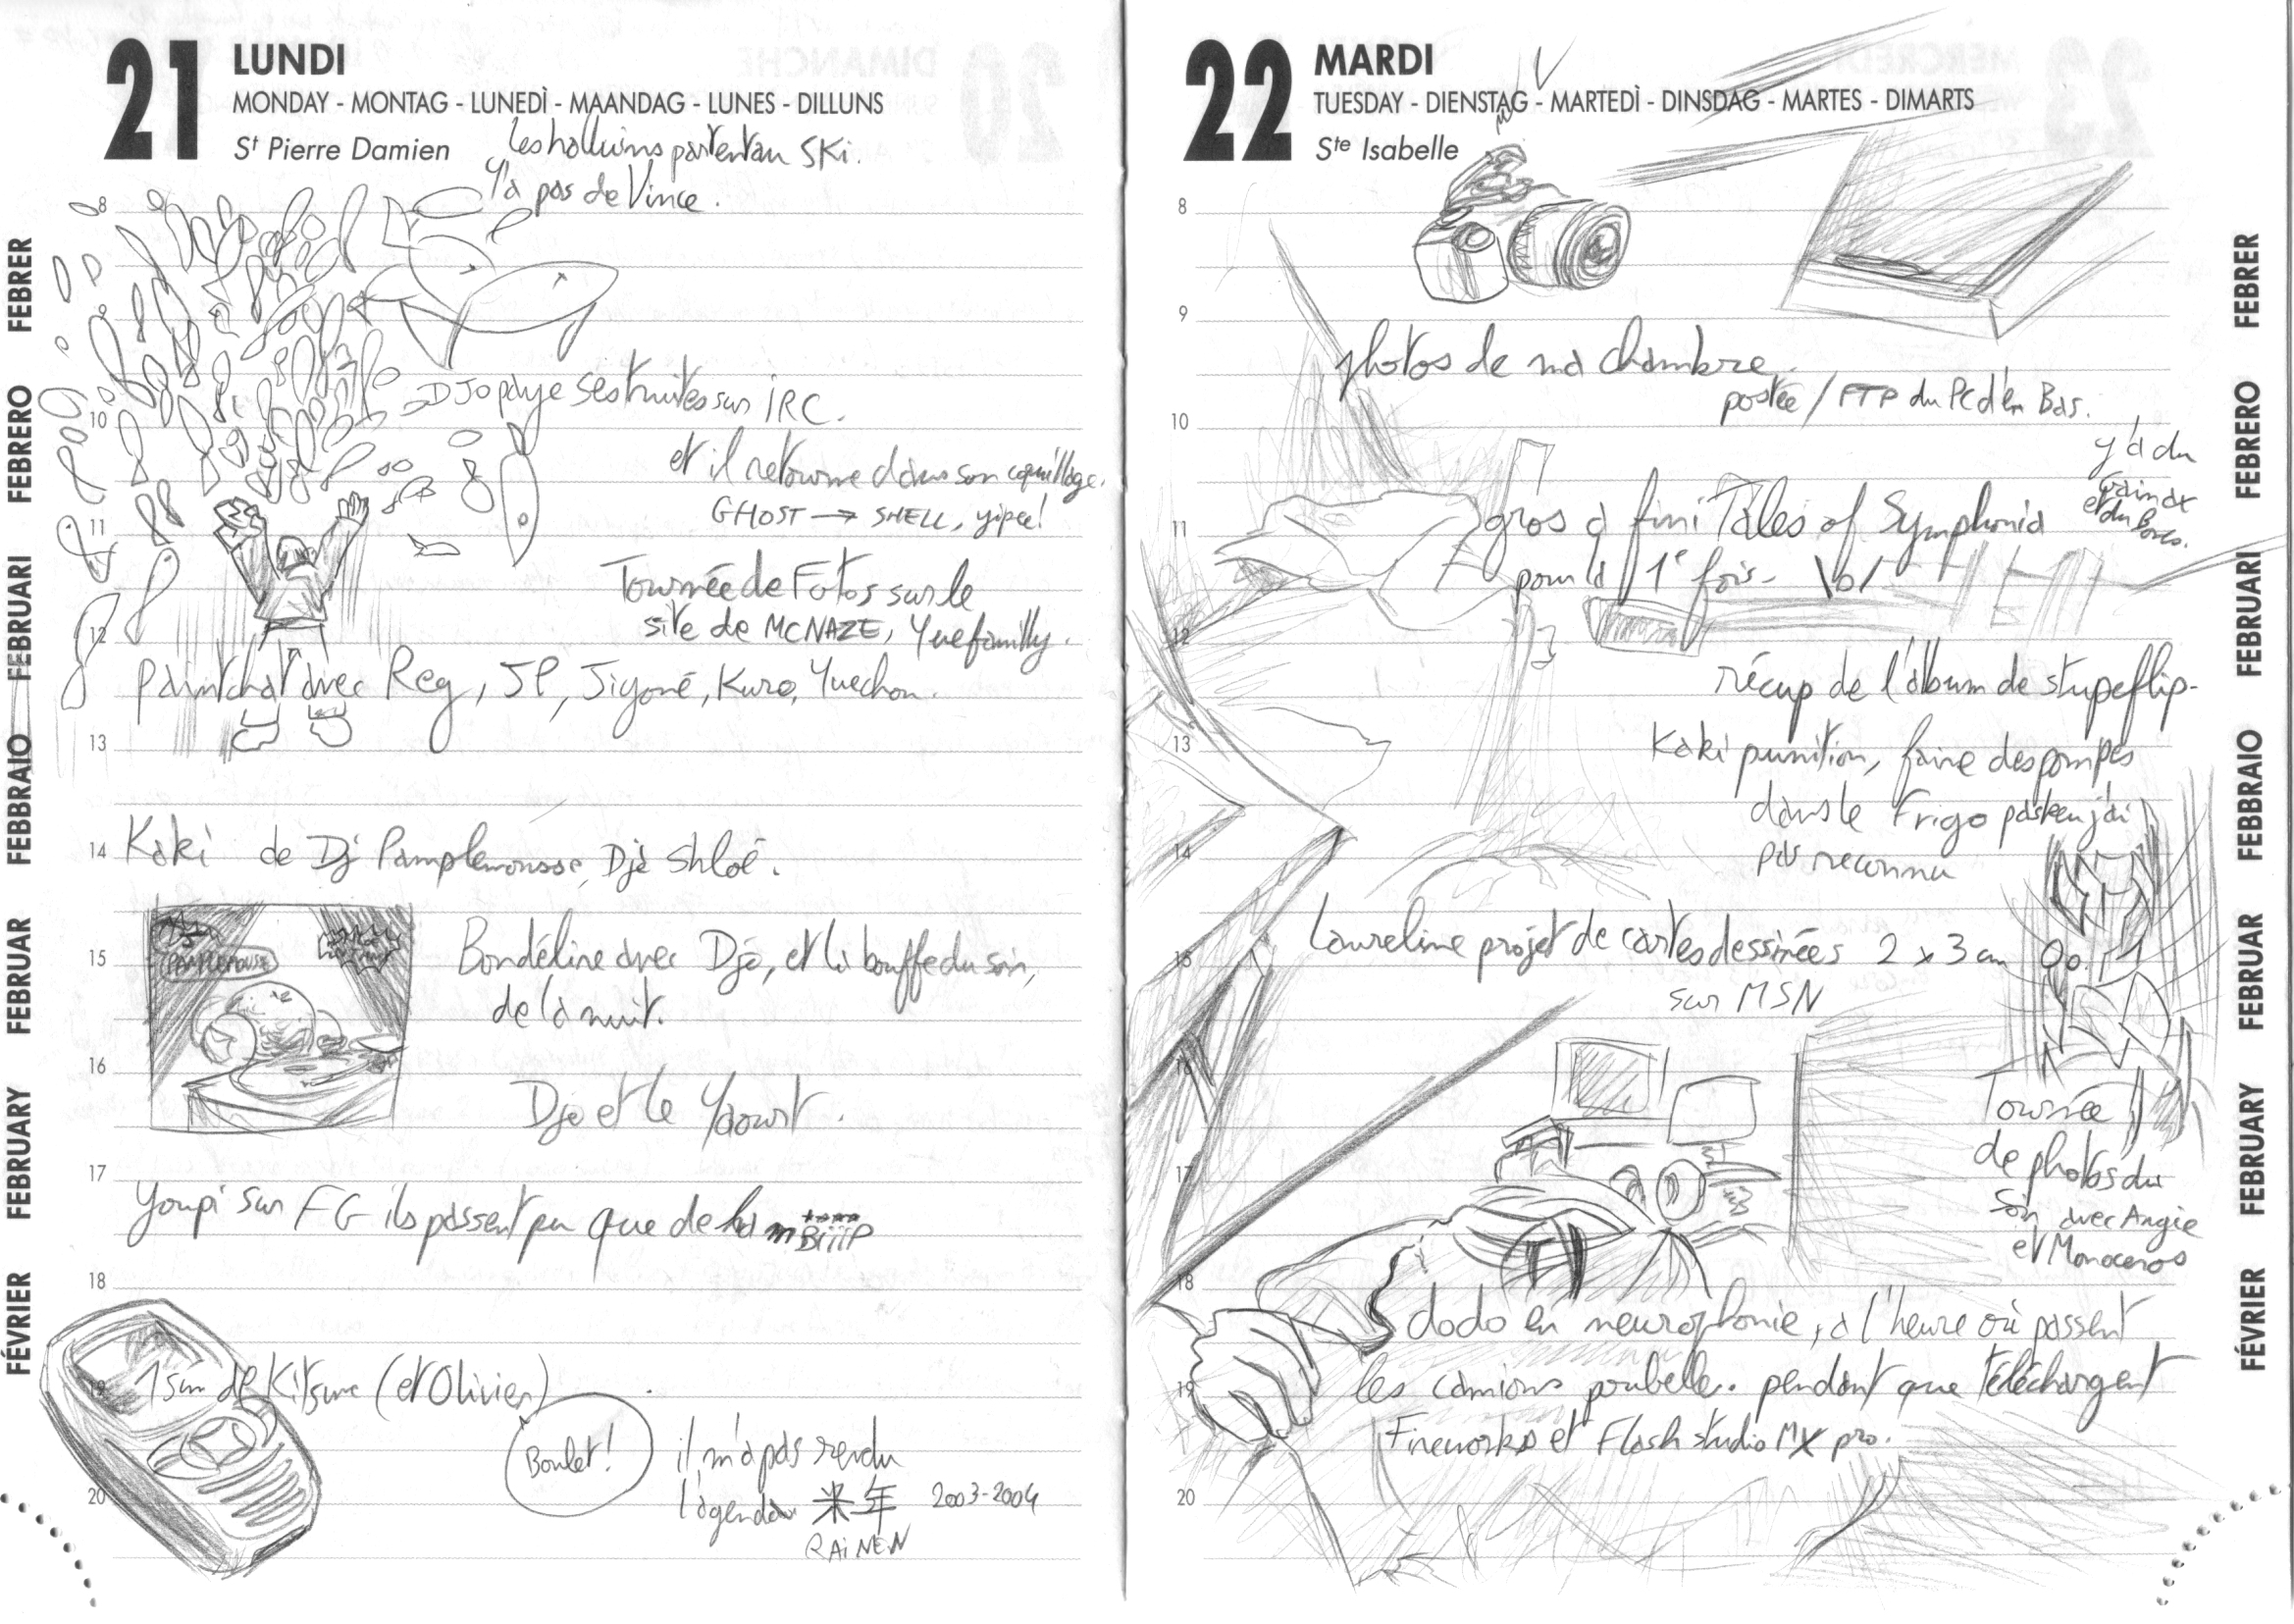 21 LUNDI
MONDAY - MONTAG - LUNEDÌ - MAANDAG - LUNES - DILLUNS
St Pierre Damien
les halluins partent au SKi.
Y'a pas de Vince.
8
9
DJo paye ses truites sur iRC.
10
et il retourne dans son coquillage.
GHOST → SHELL, yipee!
11
Tournée de Fotos sur le
site de MCNAZE, Yuefamilly.
12
paintchat avec Reg, JP, Jigoné, Kuro, Yuechan.
13
Kaki de Dj Pamplemousse, Djo Shloé.
14
PAMPLEMOUSSE
15
Bondéline avec Djo, et la bouffe du soir,
de la nuit.
16
Djo et le Yaourt.
17
Youpi sur FG ils passent pu que de la m BiiiP
18
19
1 sms de Kitsune (et Olivier)
Boulet!
il m'a pas rendu
l'agenda 来年 2003-2004
RAiNEN
20
FÉVRIER FEBRUARY FEBRUAR FEBBRAIO FEBRUARI FEBRERO FEBRER
22 MARDI
TUESDAY - DIENSTAG - MARTEDÌ - DINSDAG - MARTES - DIMARTS
Ste Isabelle
8
9
photos de ma chambre
postée / FTP du PC d'en Bas.
10
y'a du
et du
11
gros a fini Tales of Symphonia
pour la 1e fois - \o/
12
récup de l'album de stupeflip-
13
Kaki punition, faire des pompes
dans le Frigo paskeu j'ai
14
pas reconnu
15
Laureline projet de cartes dessinées 2 x 3 cm
sur MSN
16
Tournée
17
de photos du
soir avec Angie
et Monoceros
18
dodo en neurophonie, à l'heure où passent
19
les camions poubelle. pendant que téléchargent
Fireworks et Flash studio MX pro.
20
FÉVRIER FEBRUARY FEBRUAR FEBBRAIO FEBRUARI FEBRERO FEBRER